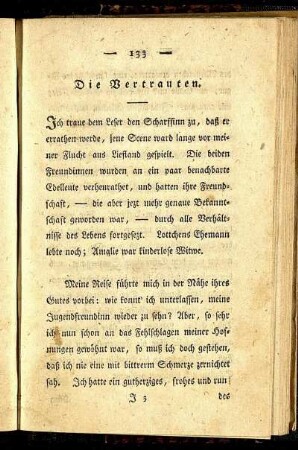 — 133 —
Die Vertrauten.
Ich traue dem Leser den Scharfsinn zu, daß er
errathen werde, jene Scene ward lange vor mei-
ner Flucht aus Liefland gespielt. Die beiden
Freundinnen wurden an ein paar benachbarte
Edelleute verheurathet, und hatten ihre Freund-
schaft, — die aber jezt mehr genaue Bekannt-
schaft geworden war, — durch alle Verhält-
nisse des Lebens fortgesezt. Lottchens Ehemann
lebte noch; Amalie war kinderlose Witwe.
Meine Reise führte mich in der Nähe ihres
Gutes vorbei: wie konnt ich unterlassen, meine
Jugendfreundinn wieder zu sehn? Aber, so sehr
ich nun schon an das Fehlschlagen meiner Hof-
nungen gewöhnt war, so muß ich doch gestehen,
daß ich nie eine mit bittrerm Schmerze zernichtet
sah. Ich hatte ein gutherziges, frohes und run
J 3 des